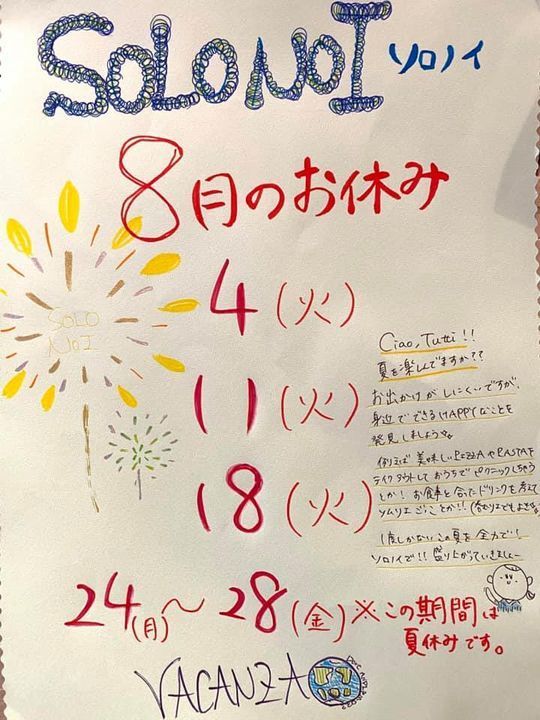 SOLO NOI ソロノイ
8月のお休み
SOLO
NOI
4(火)
11(火)
18(火)
Ciao, Tutti!!
夏を楽しんでますか??
お出かけがしにくいですが、
身近でできるHAPPYなことを
発見しましょう☆
例えば 美味しいPIZZAやPASTAを
テイクアウトして おうちでピクニックしちゃう
とか! お食事と合ったドリンクを考えて
ソムリエごっことか!!
1度しかないこの夏を全力で!
ソロノイで!! 盛り上がっていきましょー
24(月)〜28(金)※この期間は
夏休みです。
VACANZA